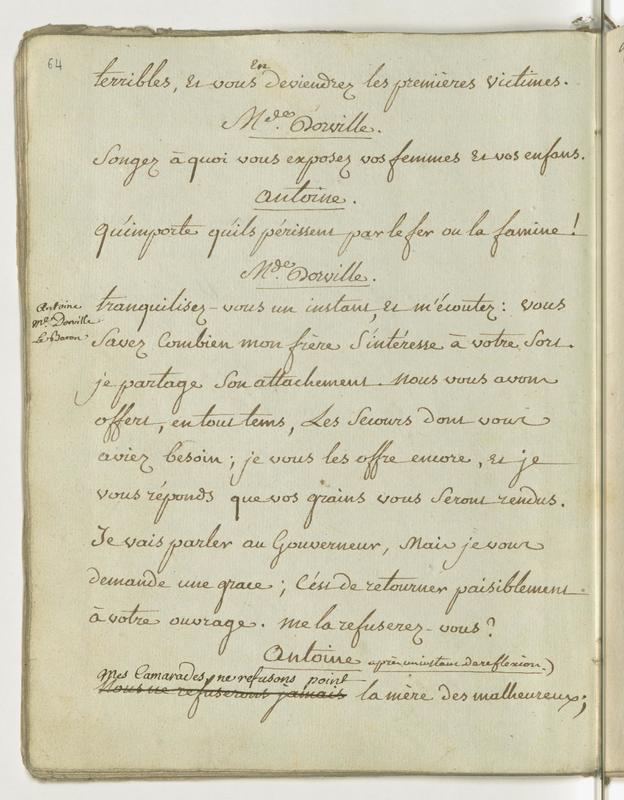 64
En
terribles, Et vous deviendrez les premières victimes.
Mde. Dorville.
Songez à quoi vous exposez vos femmes Et vos enfans.
Antoine.
qu'importe qu'ils périssent par le fer ou la famine!
Mde. Dorville.
Antoine
Me. Dorville
Le Baron
tranquilisez-vous un instant, Et m'écoutez: vous
Savez Combien mon frère S'intéresse à votre Sort.
je partage Son attachement. Nous vous avons
offert, en tout tems, Les Secours dont vous
aviez besoin; je vous les offre encore, Et je
vous réponds que vos grains vous Seront rendus.
Je vais parler au Gouverneur, Mais je vous
demande une grace; C'est de retourner paisiblement
à votre ouvrage. me la refuserez-vous?
Antoine après un instant de reflexion.)
Mes Camarades, ne refusons point
Nous ne refuserons jamais la mère des malheureux;